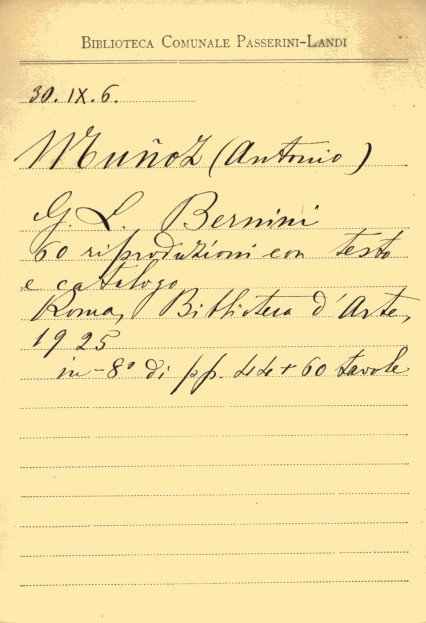 BIBLIOTECA COMUNALE PASSERINI-LANDI
30. IX. 6.
Muñoz (Antonio)
G. L. Bernini
60 riproduzioni con testo
e catalogo
Roma, Biblioteca d'Arte,
1925
in-8° di pp. 44 + 60 tavole